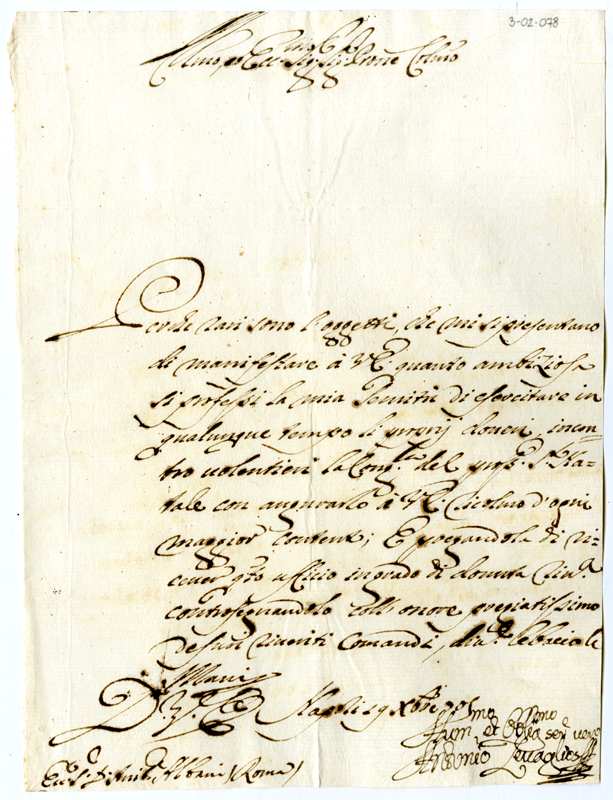 3-02-078
Ill.mo, et Ecc.mo Sig.r Sig.r Prone Col.mo
Perche rari sono l'oggetti, che mi si presentano
di manifestare à V.E. quanto ambiziosa
si professi la mia Servitù di esercitare in
qualunque tempo li proprij doveri, incon-
tro volentieri la Cong.ra del pross.o S. Na-
tale con augurarlo à V.E. ricolmo d'ogni
maggior content; E pregandola di ri-
cever q.to ufficio in grado di dovuta
contrasegnandolo colli onore pregiatissimo
de suoi riveriti Comandi, le bacio le
Mani
Di V.E. Napoli 19 Xbre
Hum. et serv vero
Antonio
Ecc. D. Anib. Albani (Roma)